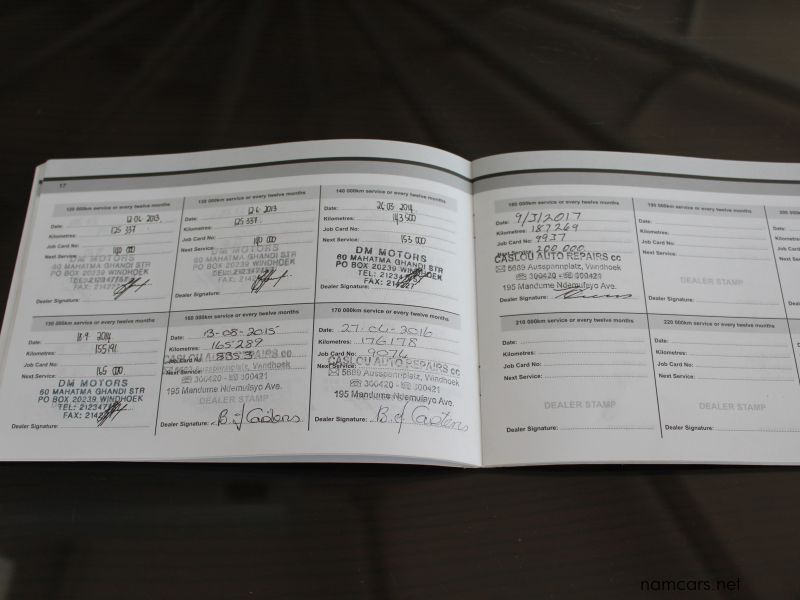 17
120 000km service or every twelve months
Date: 12.06.2013
Kilometres: 125 337
Job Card No:
Next Service: 140 000
DM MOTORS
60 MAHATMA GHANDI STR
PO BOX 20239 WINDHOEK
Dealer Signature:
130 000km service or every twelve months
Date: 12.6.2013
Kilometres: 125 337
Job Card No:
Next Service: 140 000
DM MOTORS
60 MAHATMA GHANDI STR
PO BOX 20239 WINDHOEK
Dealer Signature:
140 000km service or every twelve months
Date: 26.03.2014
Kilometres: 143 500
Job Card No:
Next Service: 153 000
DM MOTORS
60 MAHATMA GHANDI STR
PO BOX 20239 WINDHOEK
Dealer Signature:
150 000km service or every twelve months
Date: 18.9.2014
Kilometres: 155191
Job Card No:
Next Service: 165 000
DM MOTORS
60 MAHATMA GHANDI STR
PO BOX 20239 WINDHOEK
Dealer Signature:
160 000km service or every twelve months
Date: 13-08-2015
Kilometres: 165289
Job Card No: 8353
Next Service:
CASLOU AUTO REPAIRS cc
5689 Ausspannplatz, Windhoek
300420 - 300421
195 Mandume Ndemufayo Ave.
DEALER STAMP
Dealer Signature:
170 000km service or every twelve months
Date: 27-04-2016
Kilometres: 176178
Job Card No: 9074
Next Service:
CASLOU AUTO REPAIRS cc
5689 Ausspannplatz, Windhoek
300420 - 300421
195 Mandume Ndemufayo Ave.
Dealer Signature:
180 000km service or every twelve months
Date: 9/3/2017
Kilometres: 187269
Job Card No: 9937
Next Service: 200 000
CASLOU AUTO REPAIRS cc
5689 Ausspannplatz, Windhoek
300420 - 300421
195 Mandume Ndemufayo Ave.
Dealer Signature:
190 000km service or every twelve months
Date:
Kilometres:
Job Card No:
Next Service:
DEALER STAMP
Dealer Signature:
210 000km service or every twelve months
Date:
Kilometres:
Job Card No:
Next Service:
DEALER STAMP
Dealer Signature:
220 000km service or every twelve months
Date:
Kilometres:
Job Card No:
Next Service:
DEALER STAMP
Dealer Signature:
namcars.net